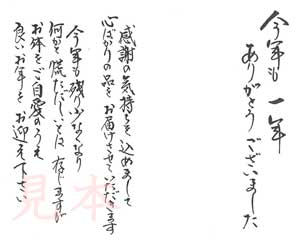 今年も一年
ありがとうございました
感謝の気持ちを込めまして
心ばかりの品をお届けさせていただきます
今年も残り少なくなり
何かと慌ただしいことは存じますが
お体をご自愛のうえ
良いお年をお迎え下さい
見本